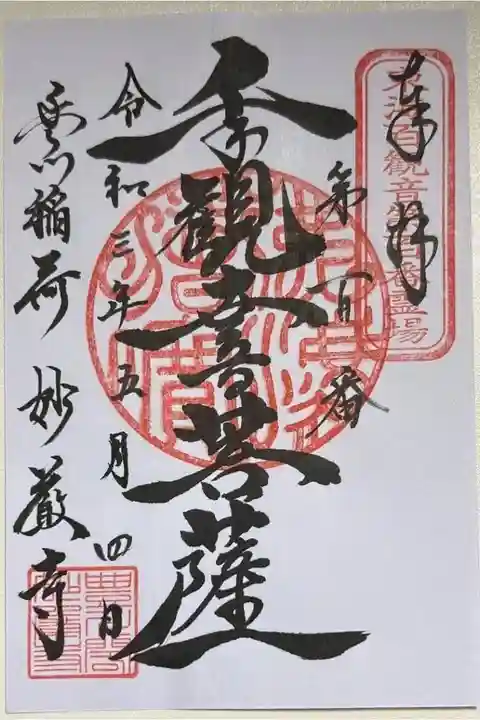 東海百観音第百番霊場
奉拝
第百番
千手観音菩薩
令和三年五月四日
豊川稲荷 妙厳寺